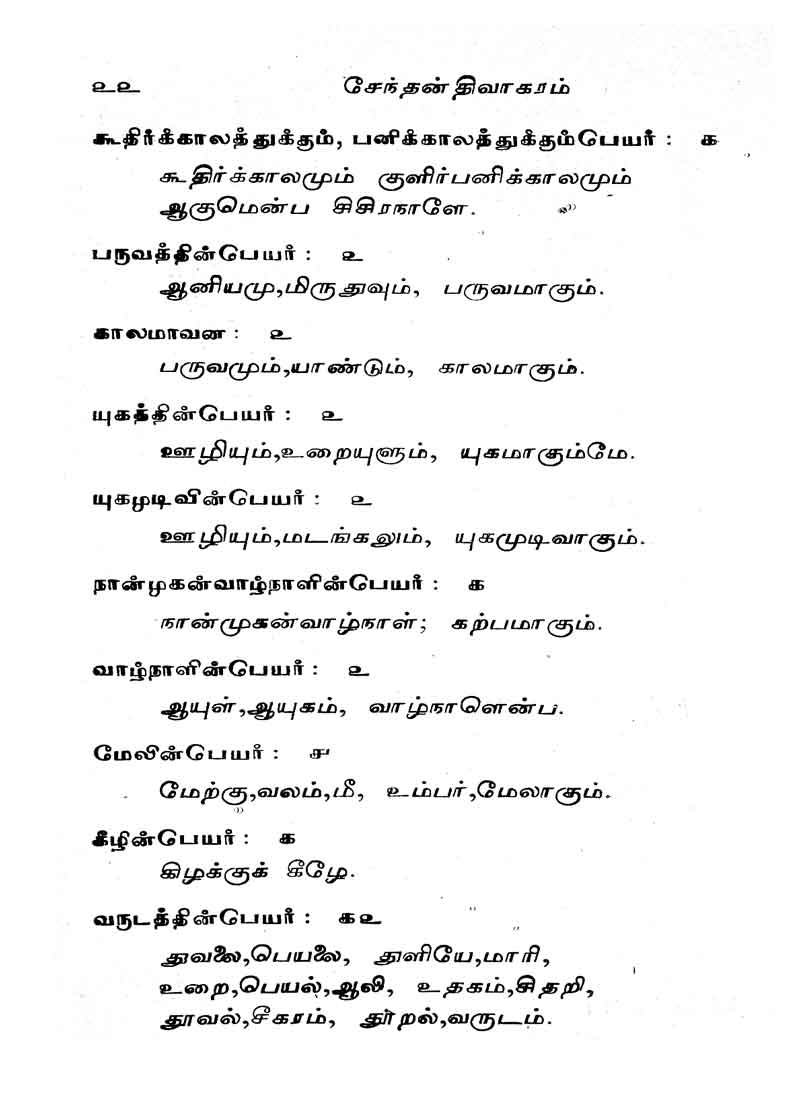 ௨௨ சேந்தன் திவாகரம்
கூதிர்க்காலத்துக்கும், பனிக்காலத்துக்கும்பெயர் : க
கூதிர்க்காலமும் குளிர்பனிக்காலமும்
ஆகுமென்ப சிசிரநாளே.
பருவத்தின்பெயர் : ௨
ஆனியமு,மிருதுவும், பருவமாகும்.
காலமாவன : ௨
பருவமும்,யாண்டும், காலமாகும்.
யுகத்தின்பெயர் : ௨
ஊழியும்,உறையுளும், யுகமாகும்மே.
யுகமுடிவின்பெயர் : ௨
ஊழியும்,மடங்கலும், யுகமுடிவாகும்.
நான்முகன்வாழ்நாளின்பெயர் : க
நான்முகன்வாழ்நாள்; கற்பமாகும்.
வாழ்நாளின்பெயர் : ௨
ஆயுள்,ஆயுகம், வாழ்நாளென்ப.
மேலின்பெயர் : ௪
மேற்கு,வலம்,மீ, உம்பர்,மேலாகும்.
கீழின்பெயர் : க
கிழக்குக் கீழே.
வருடத்தின்பெயர் : க௨
துவலை,பெயலை, துளியே,மாரி,
உறை,பெயல்,ஆலி, உதகம்,சிதறி,
தூவல்,சீகரம், தூறல்,வருடம்.